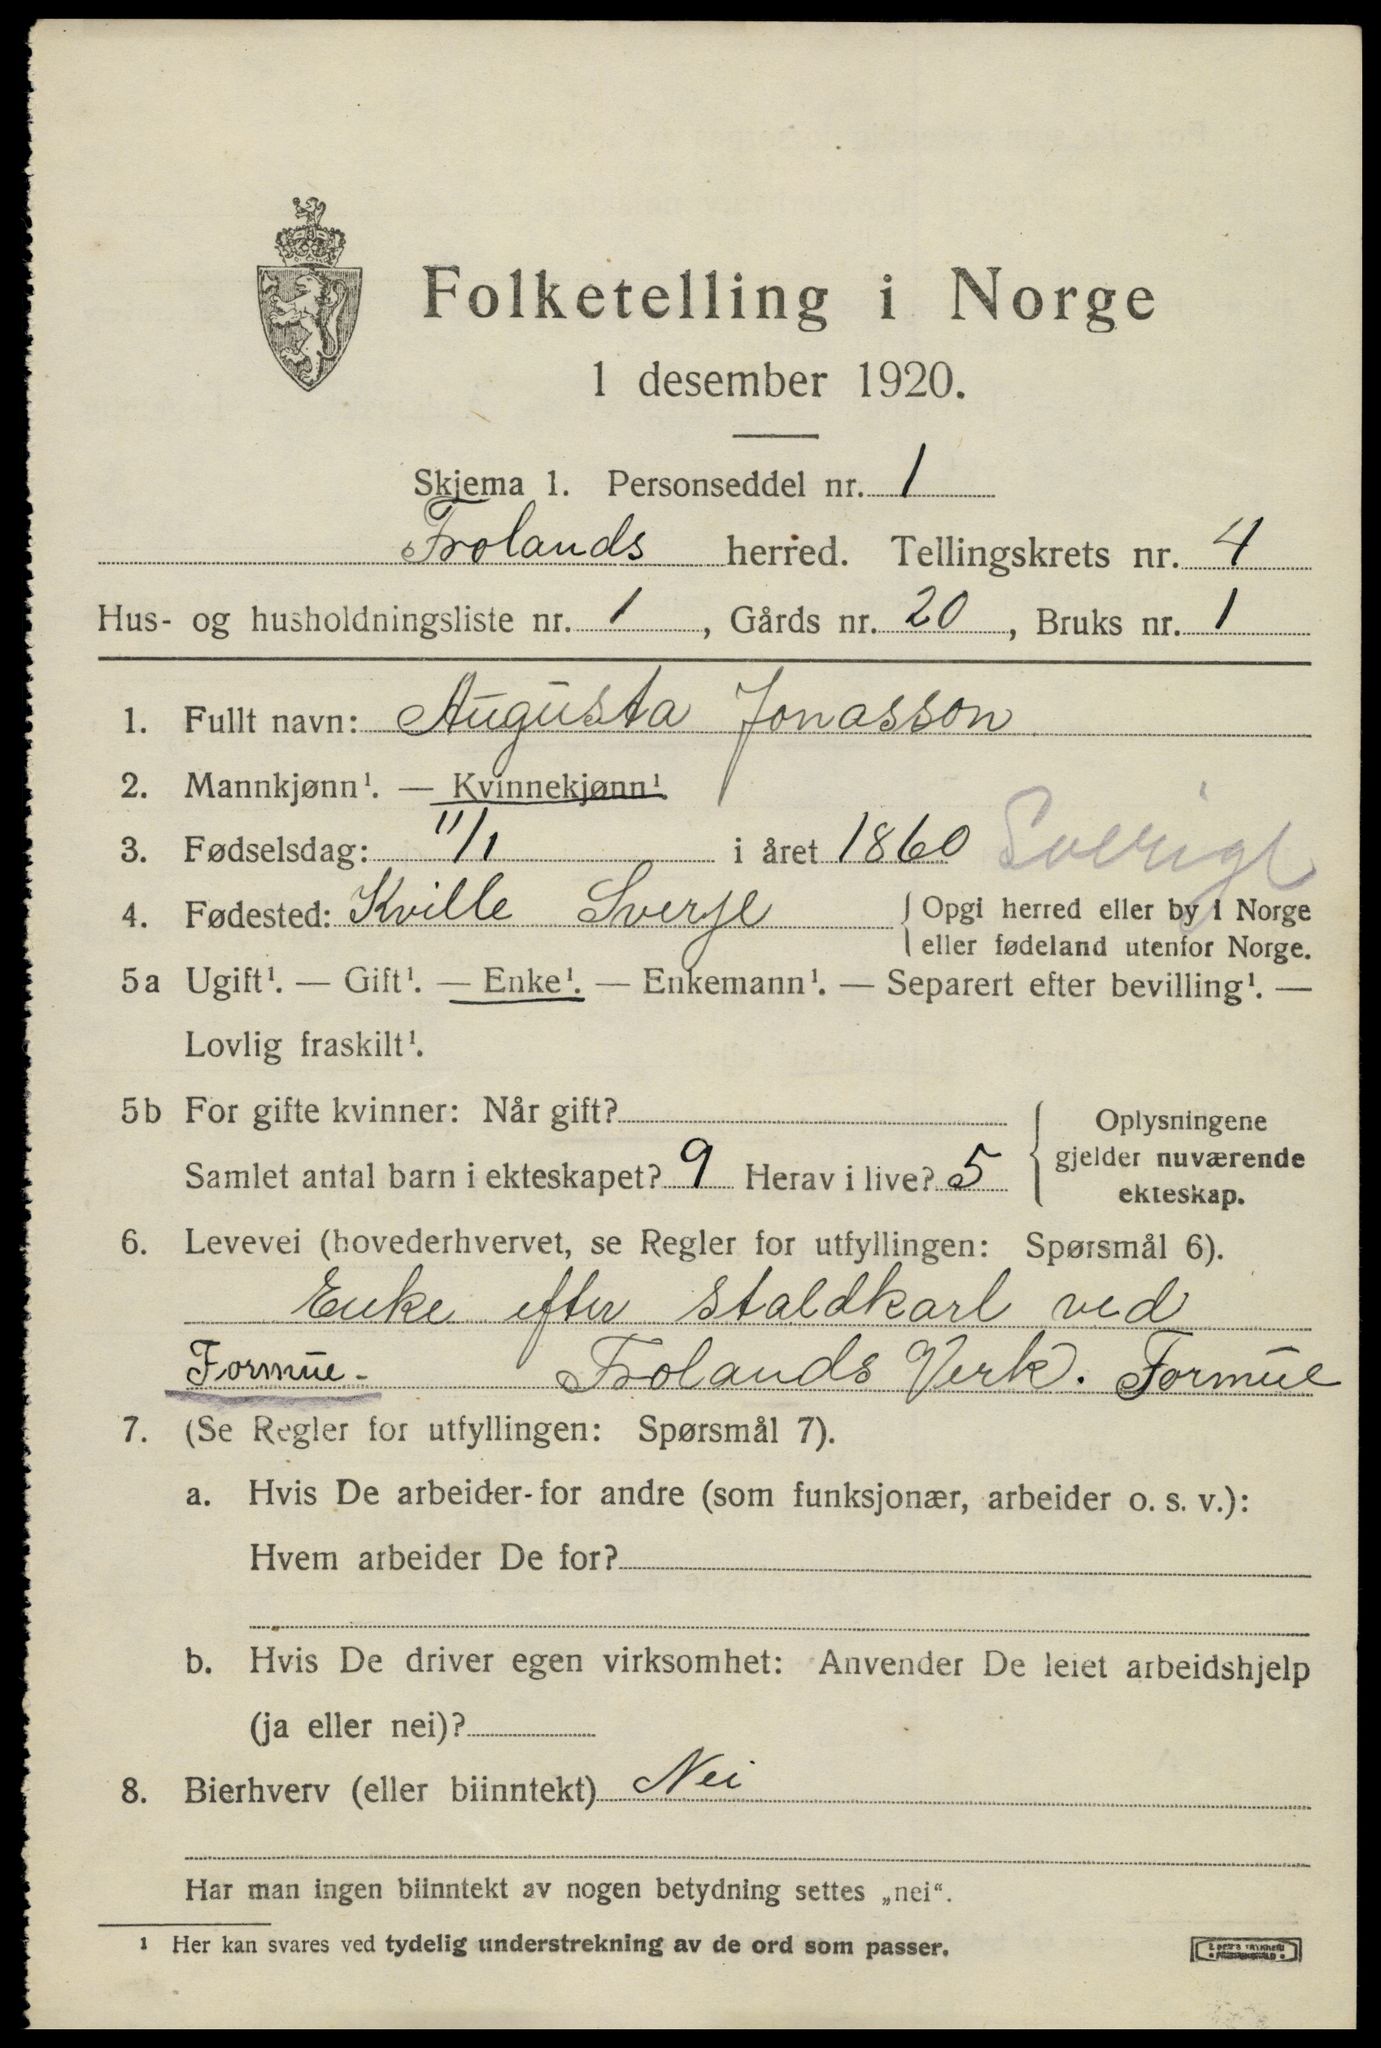 Folketelling i Norge
1 desember 1920.
Skjema 1. Personseddel nr. 1
Frolands herred. Tellingskrets nr. 4
Hus- og husholdningsliste nr. 1, Gårds nr. 20, Bruks nr. 1
1. Fullt navn: Augusta Jonasson
2. Mannkjønn¹. — Kvinnekjønn¹.
3. Fødselsdag: 11/1 i året 1860 Sverige
4. Fødested: Kville Sverje { Opgi herred eller by i Norge
eller fødeland utenfor Norge.
5a Ugift¹. — Gift¹. — Enke¹. — Enkemann¹. — Separert efter bevilling¹. —
Lovlig fraskilt¹.
5b For gifte kvinner: Når gift? { Oplysningene
gjelder nuværende
ekteskap.
Samlet antal barn i ekteskapet? 9 Herav i live? 5
6. Levevei (hovederhvervet, se Regler for utfyllingen: Spørsmål 6).
Enke efter staldkarl ved
Formue - Frolands Verk. Formue
7. (Se Regler for utfyllingen: Spørsmål 7).
a. Hvis De arbeider for andre (som funksjonær, arbeider o. s. v.):
Hvem arbeider De for?
b. Hvis De driver egen virksomhet: Anvender De leiet arbeidshjelp
(ja eller nei)?
8. Bierhverv (eller biinntekt) Nei
Har man ingen biinntekt av nogen betydning settes „nei“.
¹ Her kan svares ved tydelig understrekning av de ord som passer.